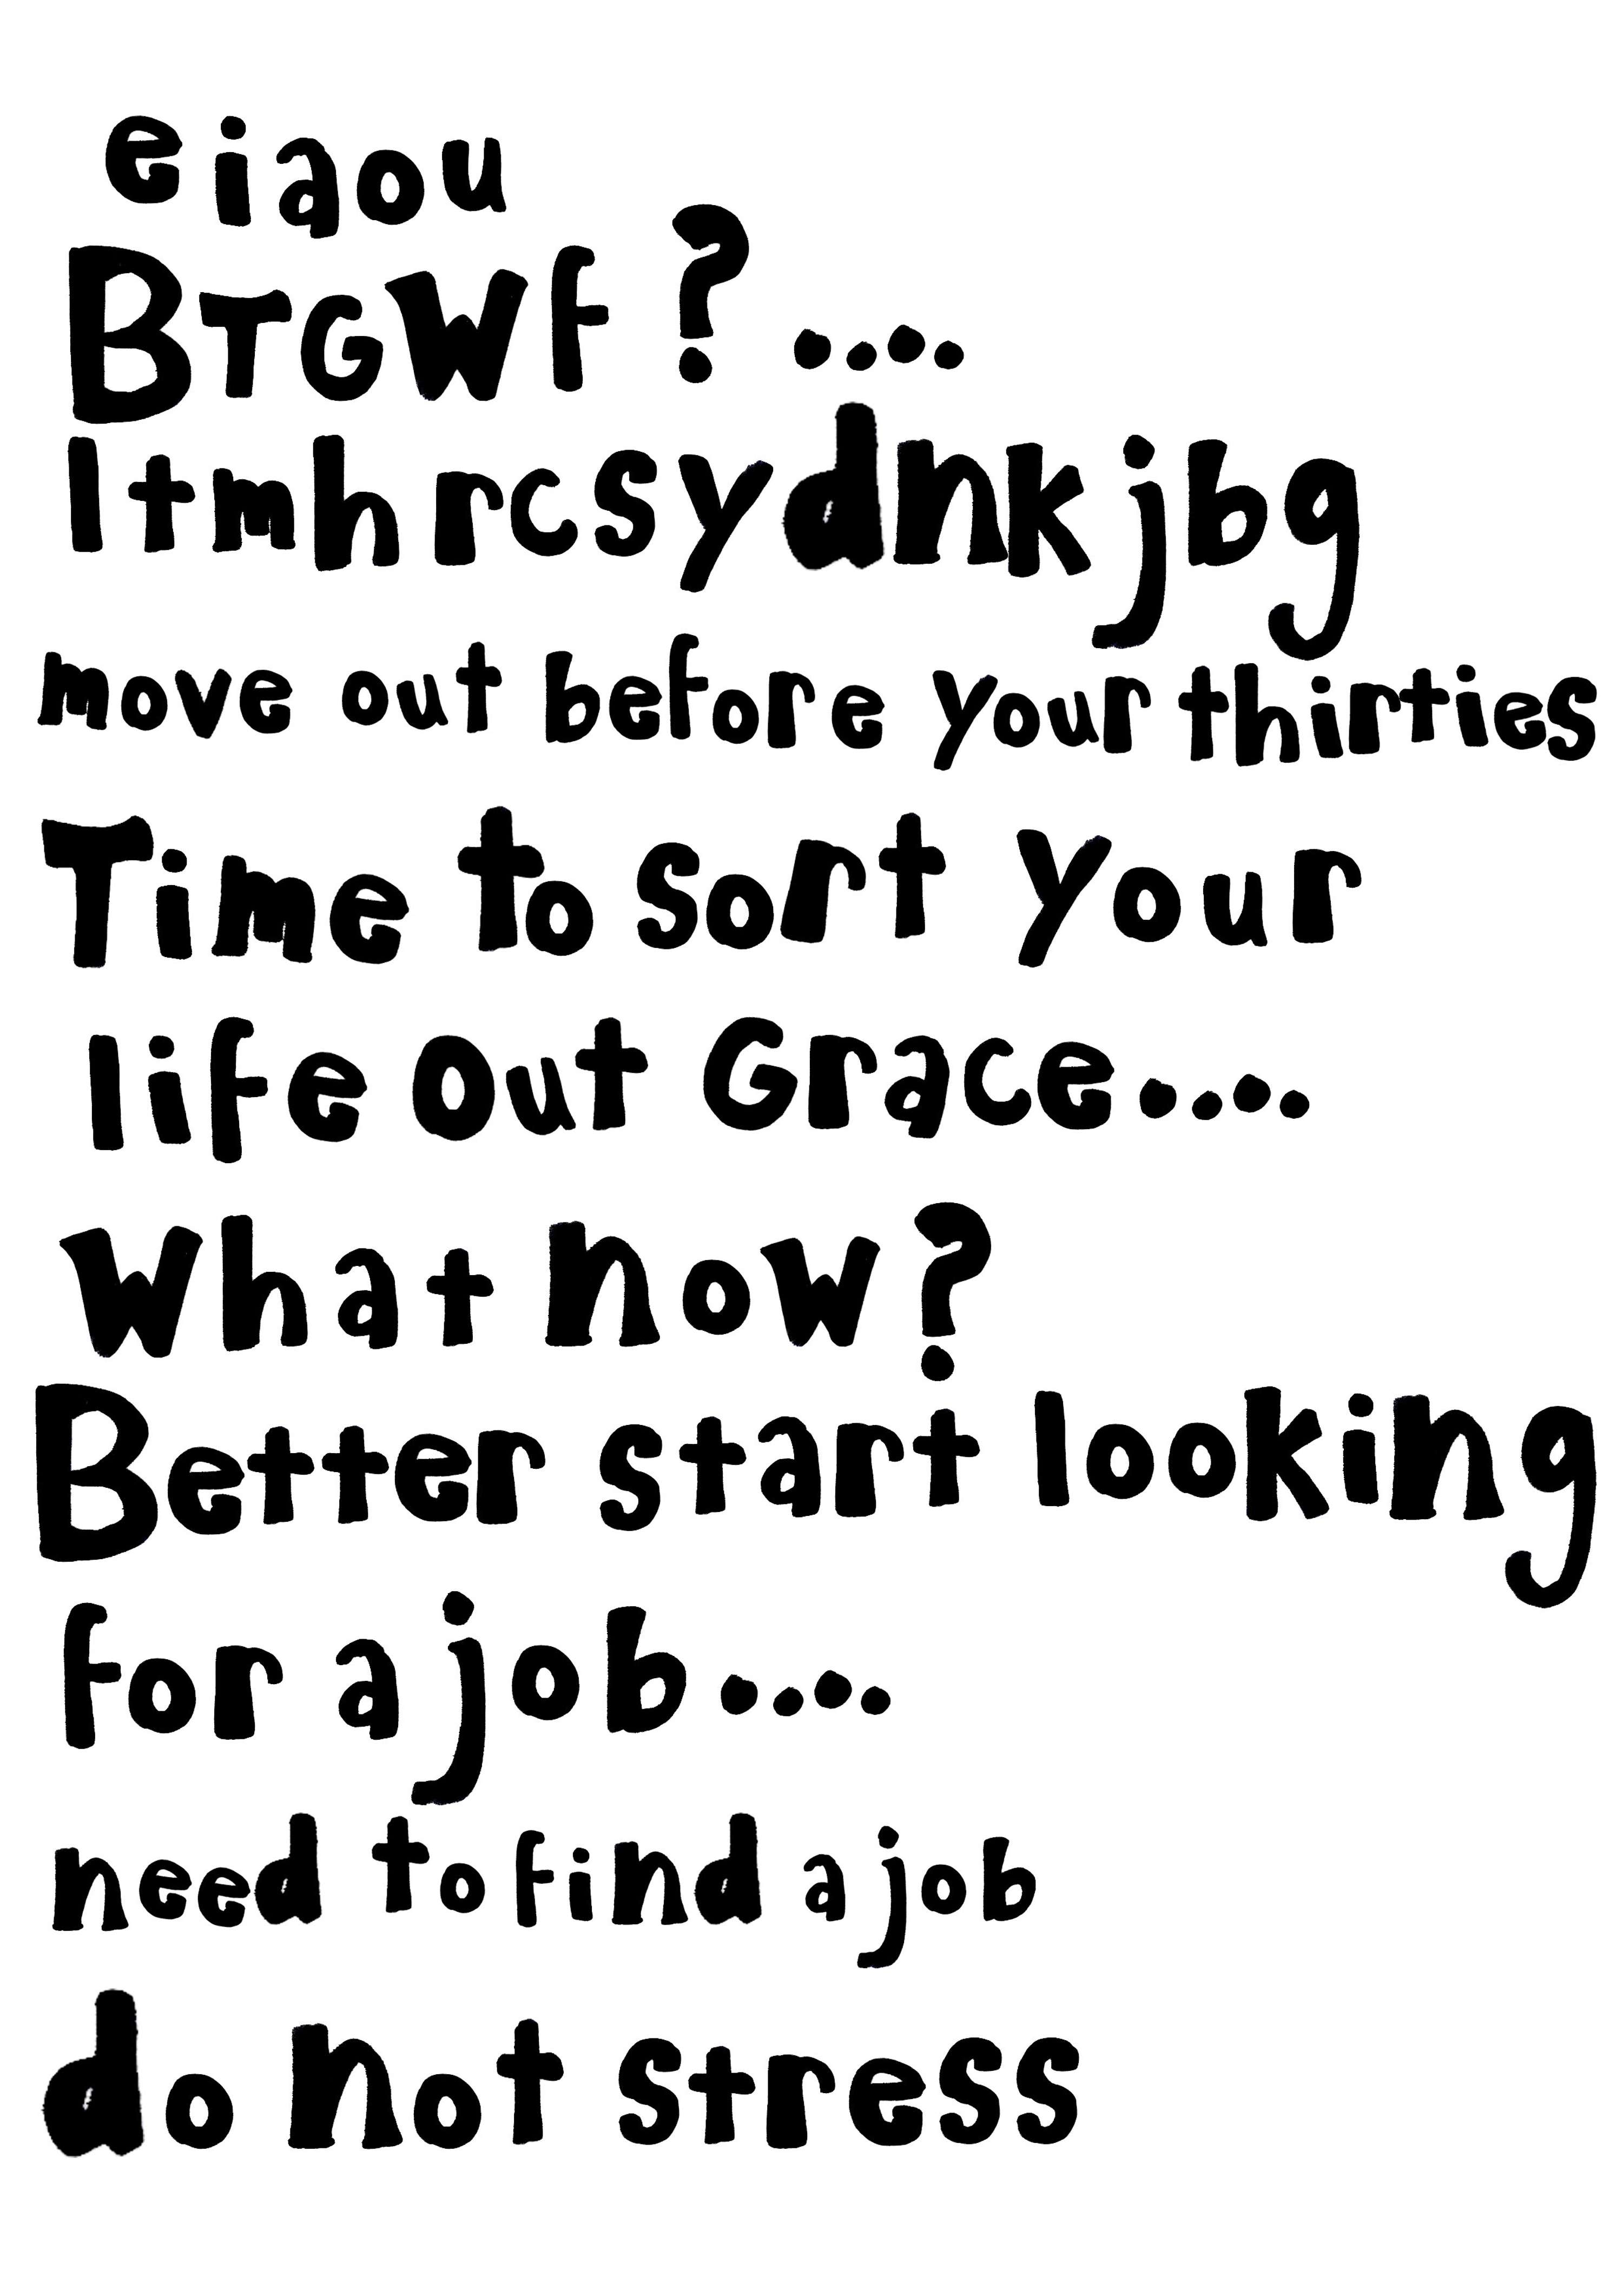 eiaou
BTGWF ? ....
ltmhrcsydnkjbg
move out before your thirties
Time to sort your
life out Grace....
What now?
Better start looking
for a job....
need to find a job
do not stress